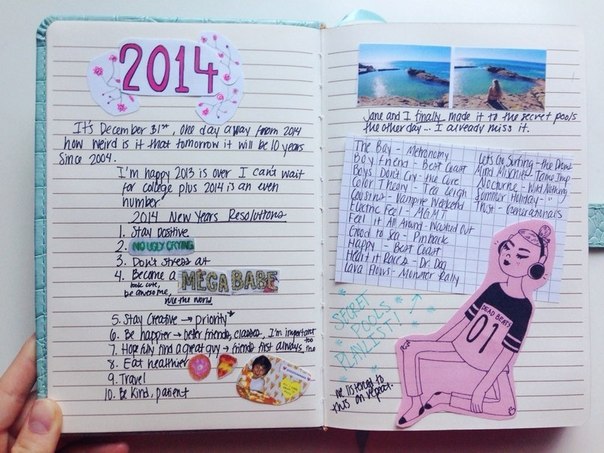 2014
It's December 31st, one day away from 2014
how weird is it that tomorrow it will be 10 years
since 2004.
I'm happy 2013 is over I can't wait
for college plus 2014 is an even
number
2014 New Years Resolutions
1. Stay positive
2. NO UGLY CRYING
3. Don't stress at
4. Become a MEGA BABE
look cute,
be awesome,
rule the world
5. Stay Creative → priority*
6. Be happier → better friends, classes, I'm important too
7. Hopefully find a great guy → friends first always, tho
8. Eat healthier
9. Travel
10. Be kind, patient
Jane and I finally made it to the secret pools
the other day... I already miss it.
The Bay - Metronomy
Boy Friend - Best Coast
Boys Don't Cry - the Cure
Color Theory - Tea Leigh
Cousins - Vampire Weekend
Electric Feel - MGMT
Feel it All Around - Washed Out
Good to Sea - Pinback
Happy - Best Coast
Heart it Races - Dr. Dog
Lava Flows - Monster Rally
Let's Go Surfing - the Drums
Mind Mischief - Tame Imp
Nocturne - Wild Nothing
Summer Holiday - "
Trust - Generationals
SECRET
POOLS
PLAYLIST!
we listened to
this on repeat.
DEAD BEATS
01